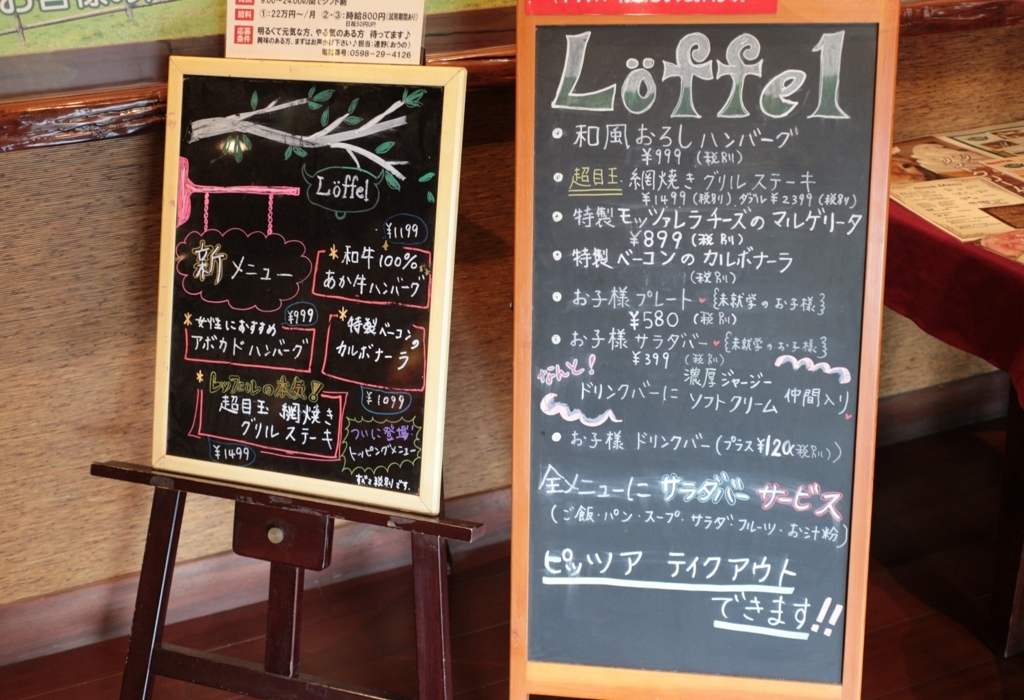 9:00~24:00の間でシフト制
給料 ①:22万円~/月 ②・③:時給800円(試用期間あり)
日祝50円UP!
応募条件 明るくて元気な方、やる気のある方 待ってます♪
興味のある方、まずはお声掛け下さい♪担当:遠野(おうの)
電話番号:0598-29-4126
Löffel
新メニュー
¥1199
*和牛100%
あか牛ハンバーグ
¥999
*女性におすすめ
アボカドハンバーグ
*特製ベーコン
カルボナーラ
¥1099
*レッフェルの本気!
超目玉 網焼き
グリルステーキ
¥1499
ついに登場
トッピングメニュー
すべて税別です。
Löffel
和風おろしハンバーグ
¥999 (税別)
超目玉 網焼きグリルステーキ
¥1499(税別) ダブル¥2399(税別)
特製モッツァレラチーズのマルゲリータ
¥899(税別)
特製ベーコンのカルボナーラ
(税別)
お子様プレート♥{未就学のお子様}
¥580 (税別)
お子様サラダバー♥{未就学のお子様}
¥399 (税別)
なんと!
ドリンクバーに 濃厚ジャージー
ソフトクリーム 仲間入り♥
お子様ドリンクバー(プラス¥120(税別))
全メニューに サラダバー サービス
(ご飯・パン・スープ・サラダ フルーツ・お汁粉)
ピッツア テイクアウト
できます!!